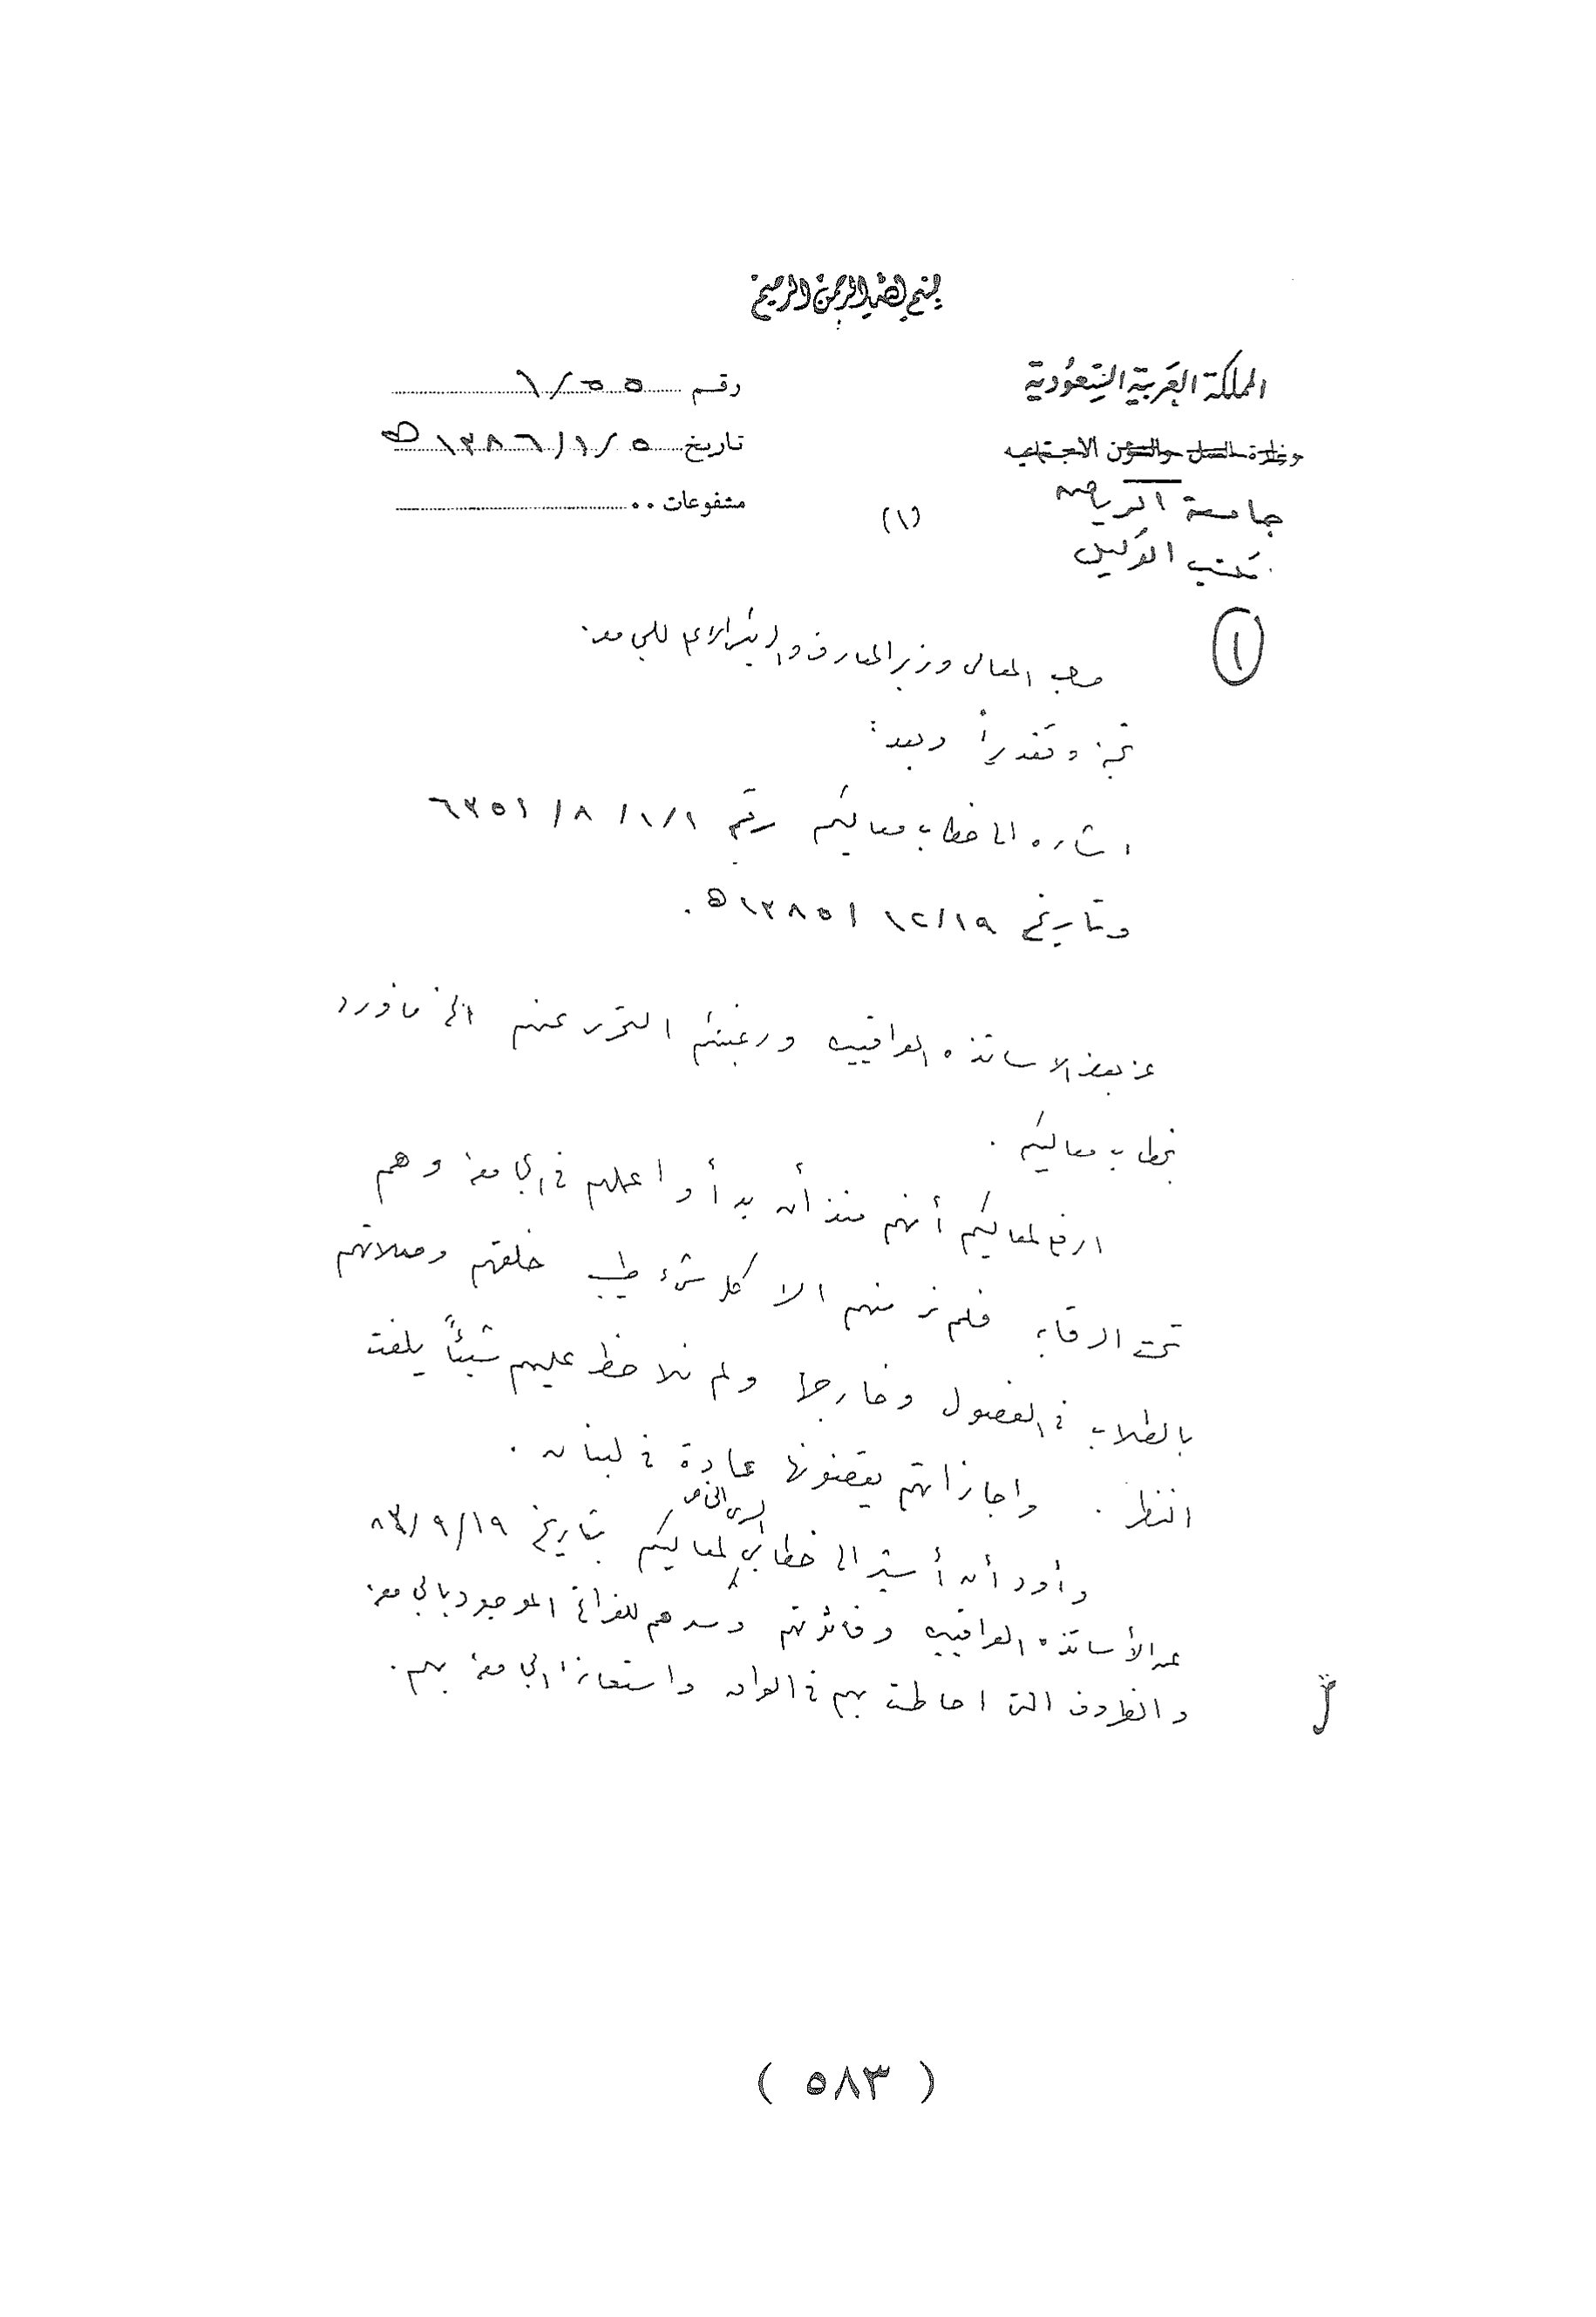 بسم الله الرحمن الرحيم
المملكة العربية السعودية
وزارة العمل والشؤون الاجتماعية
جامعة الرياض
مكتب الوكيل
رقم ٥٥/١
تاريخ ٥/١/١٣٨٦ه
مشفوعات ٠٠
(١)
١
صاحب المعالي وزير المعارف والرئيس الاعلى للجامعة.
تحية وتقديراً وبعد:
اشاره الى خطاب معاليكم رقم ١/١/٨/٦٣٥١
وتاريخ ١٢/١٩/١٣٨٥ه.
عن بعض الاساتذه العراقيين ورغبتكم التحرى عنهم الخ ماورد
بخطاب معاليكم.
ارفع لمعاليكم أنهم منذ أن بدأوا عملهم في الجامعة وهم
تحت الرقابة فلم نر منهم الا كل شيء طيب خلقهم وصلاتهم
بالطلاب في الفصول وخارجها ولم نلاحظ عليهم شيئاً يلفت
النظر. واجازاتهم يقضونها عادة في لبنان.
وأود أن أشير الى خطابي السري الخاص لمعاليكم بتاريخ ١٩/٩/٨٣
عن الأساتذه العراقيين وفائدتهم وسدهم للفراغ الموجود بالجامعة
والظروف التي احاطت بهم في العراق واستعانة الجامعة بهم.
( ٥٨٣ )